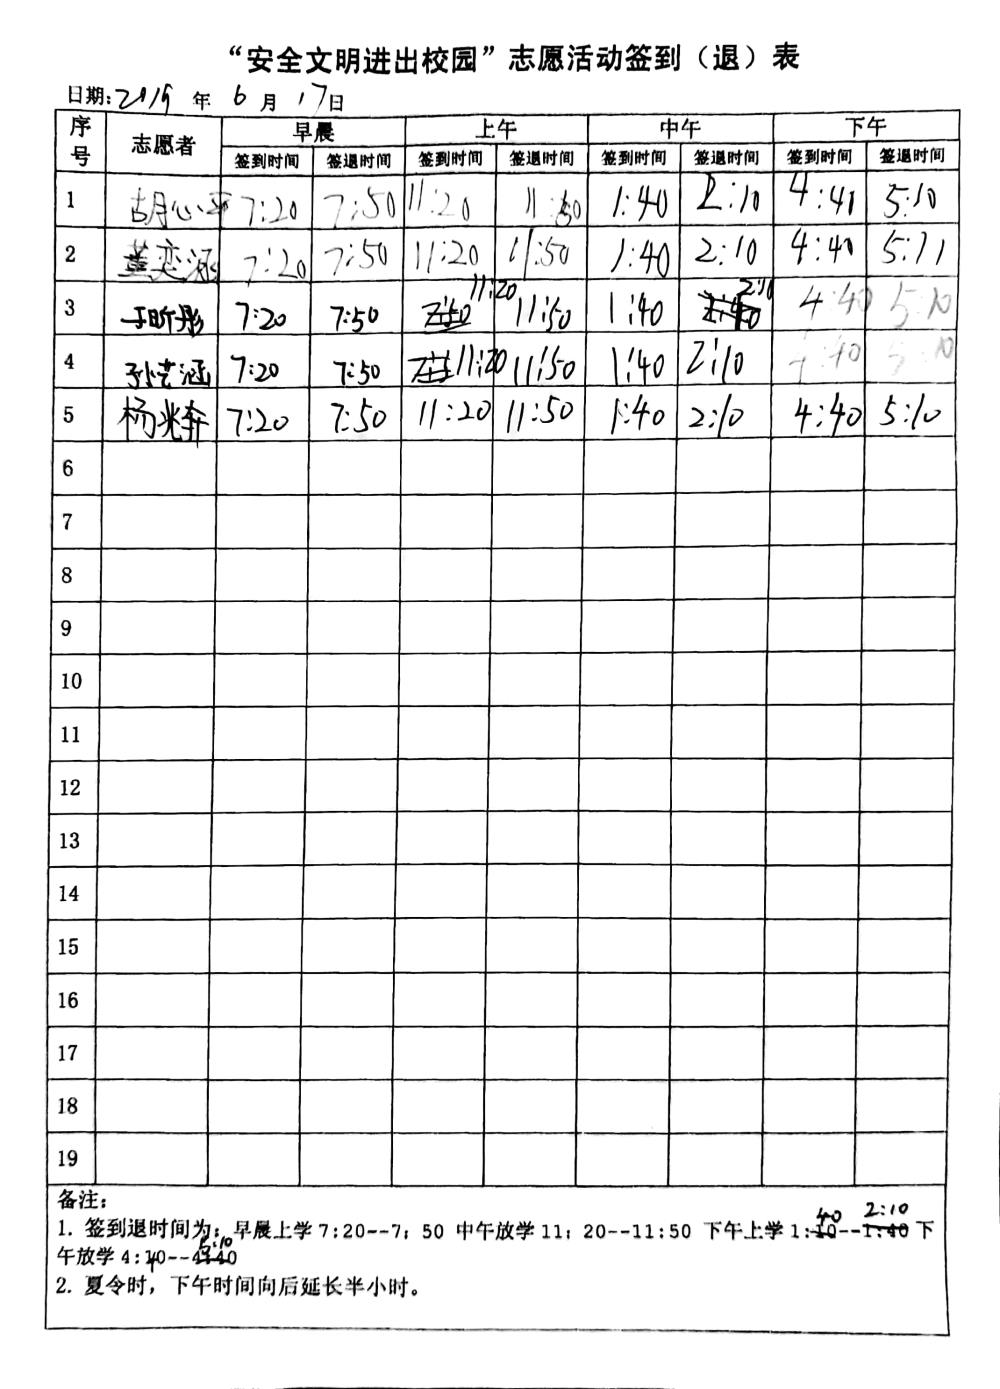 “安全文明进出校园”志愿活动签到（退）表
日期：2019年 6 月 17日
序号 志愿者 早晨 上午 中午 下午
签到时间 签退时间 签到时间 签退时间 签到时间 签退时间 签到时间 签退时间
1 胡心平 7:20 7:50 11:20 11:50 1:40 2:10 4:40 5:10
2 董奕涵 7:20 7:50 11:20 11:50 1:40 2:10 4:40 5:11
3 丁昕彤 7:20 7:50 11:20 11:50 1:40 2:10 4:40 5:10
4 7:20 7:50 11:20 11:50 1:40 2:10 4:40 5:10
5 杨光奔 7:20 7:50 11:20 11:50 1:40 2:10 4:40 5:10
6
7
8
9
10
11
12
13
14
15
16
17
18
19
备注：
40 2:10
1. 签到退时间为：早晨上学 7:20--7：50 中午放学 11：20--11:50 下午上学 1:10--1:40 下
5:10
午放学 4:40--4:40
2. 夏令时，下午时间向后延长半小时。